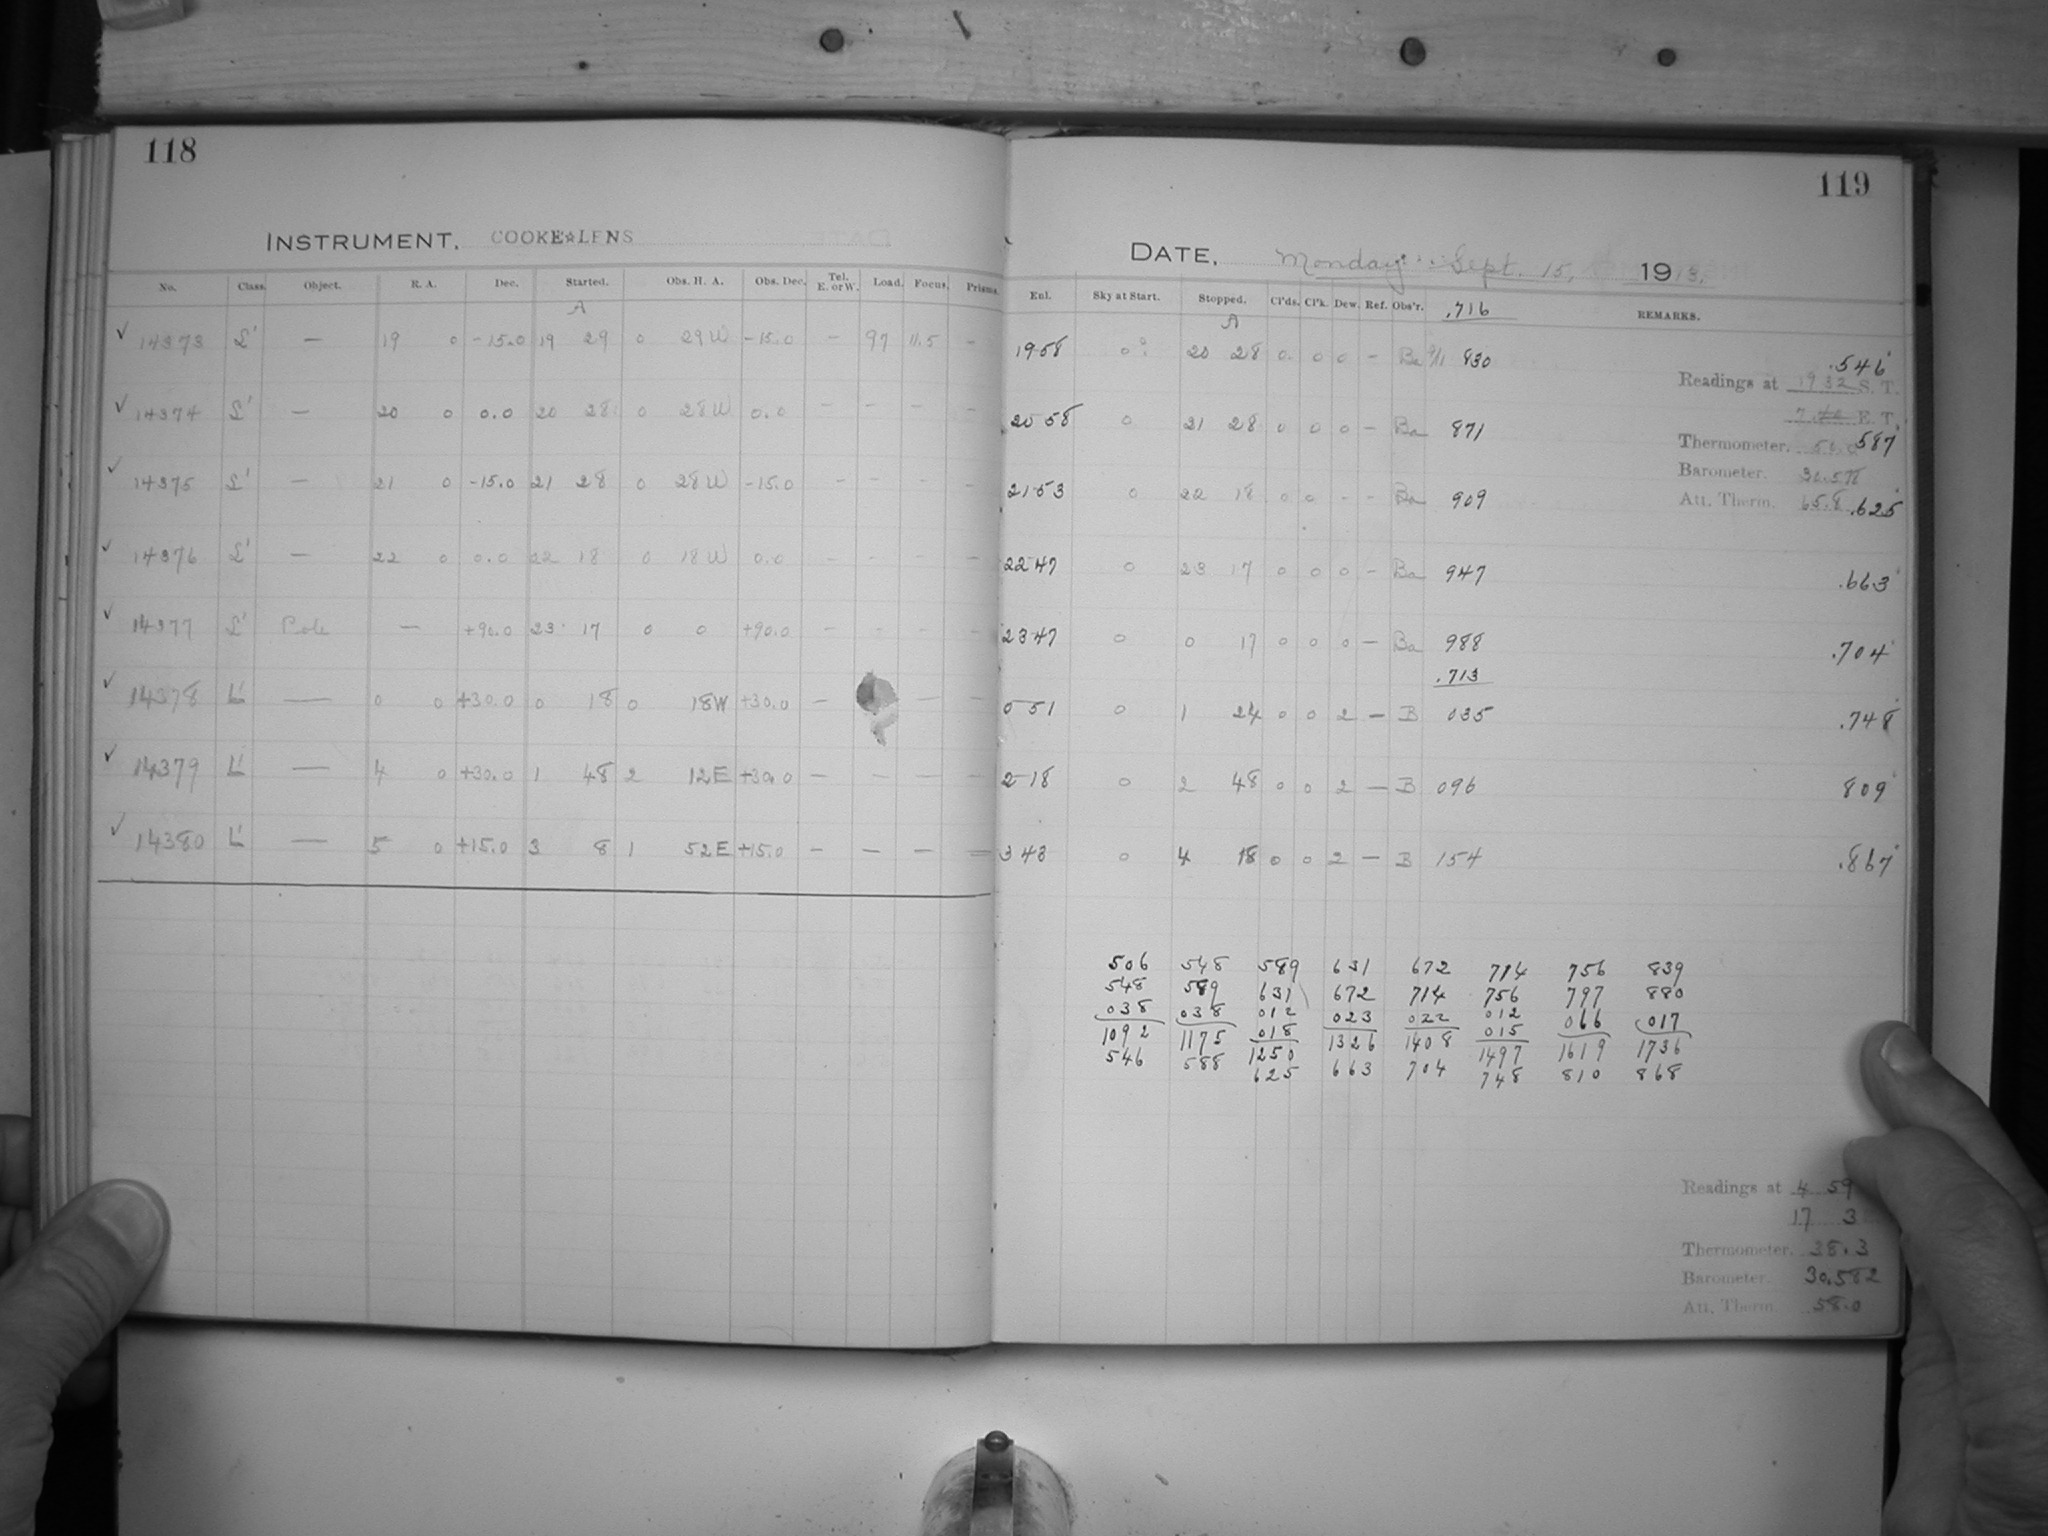 118
INSTRUMENT. COOKE☆LENS
No. Class. Object. R. A. Dec. Started. Obs. H. A. Obs. Dec. Tel. E. or W. Load. Focus. Prisms.
A
✓ 14373 L' — 19 0 -15.0 19 29 0 29W -15.0 — 97 11.5 -
✓ 14374 L' — 20 0 0.0 20 28 0 28W 0.0 — — — -
✓ 14375 L' — 21 0 -15.0 21 28 0 28W -15.0 - - - -
✓ 14376 L' — 22 0 0.0 22 18 0 18W 0.0 - - - -
✓ 14377 L' Pole — +90.0 23 17 0 0 +90.0 - - - -
✓ 14378 L' — 0 0 +30.0 0 18 0 18W +30.0 — — —
✓ 14379 L' — 4 0 +30.0 1 48 2 12E +30.0 — — — —
✓ 14380 L' — 5 0 +15.0 3 8 1 52E +15.0 — — — —
119
DATE. Monday Sept. 15, 1913.
Enl. Sky at Start. Stopped. Cl'ds. Cl'k. Dew. Ref. Obs'r. .716 REMARKS.
A
19 58 0 20 28 0 0 0 - Ba 830 .546
Readings at 19 32 S. T.
E. T.
20 58 0 21 28 0 0 0 - Ba 871 587
Thermometer.
Barometer. 30.578
21 53 0 22 18 0 0 - - Ba 909 .625
Att. Therm. 65.8
22 47 0 23 17 0 0 0 - Ba 947 .663
23 47 0 0 17 0 0 0 — Ba 988 .704
.713
0 51 0 1 24 0 0 2 — B 035 .748
2 18 0 2 48 0 0 2 — B 096 809
3 43 0 4 18 0 0 2 — B 154 .867
506 548 589 631 672 714 756 839
548 589 631 672 714 756 797 880
038 038 012 023 022 012 066 017
1092 1175 018 1326 1408 015 1619 1736
546 588 1250 663 704 1497 810 868
625 748
Readings at 4 59
17 3
Thermometer. 38.3
Barometer. 30.582
Att. Therm. 58.0